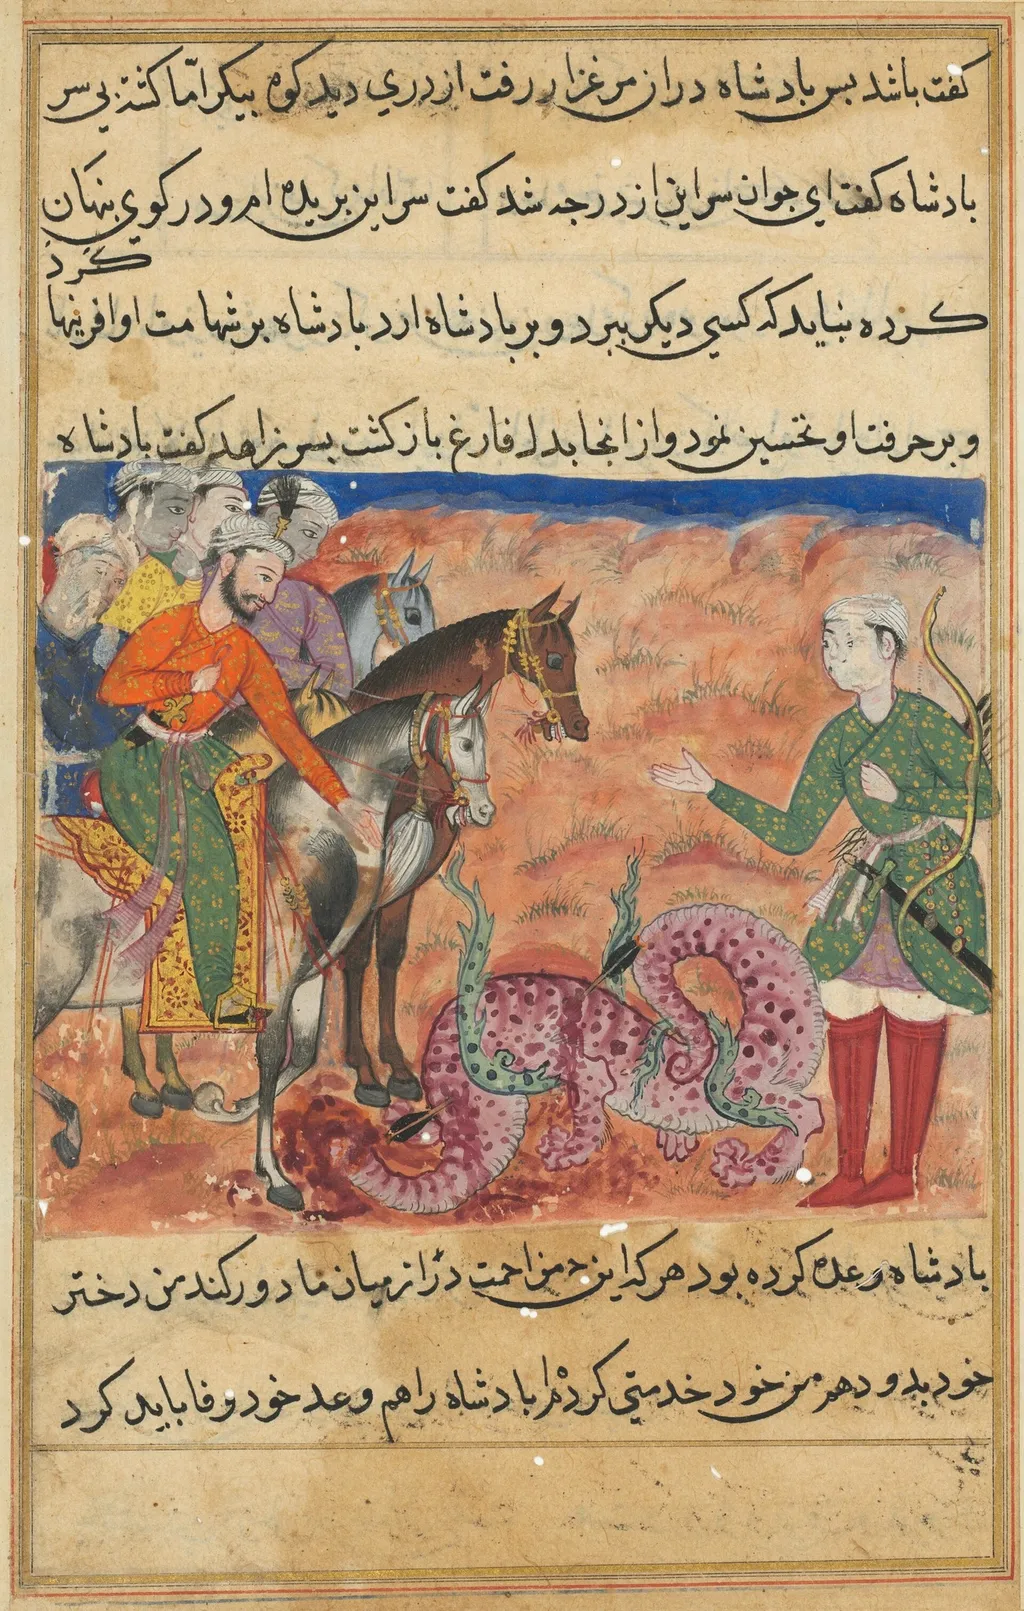 کفت باشد بس بادشاه دران مرغزار رفت ازدری دید کوه بیکر امّا کشته بی سر
بادشاه کفت ای جوان سر این ازدر جه شد کفت سر این بریده ام و در کوی بنهان
کرد
کرده بنایدکه کسی دیکر ببرد و بر بادشاه ارد بادشاه بر شهامت او افرینها
و بر حرفت او تحسین نمود و از انجا بدل فارغ باز کشت بسر زاهد کفت بادشاه
بادشاه وعده کرده بود هر که این زحمت را از میان ما دور کند من دختر
خود بدو دهم من خود خدمتی کرده‌ام بادشاه را هم وعد خود وفا باید کرد